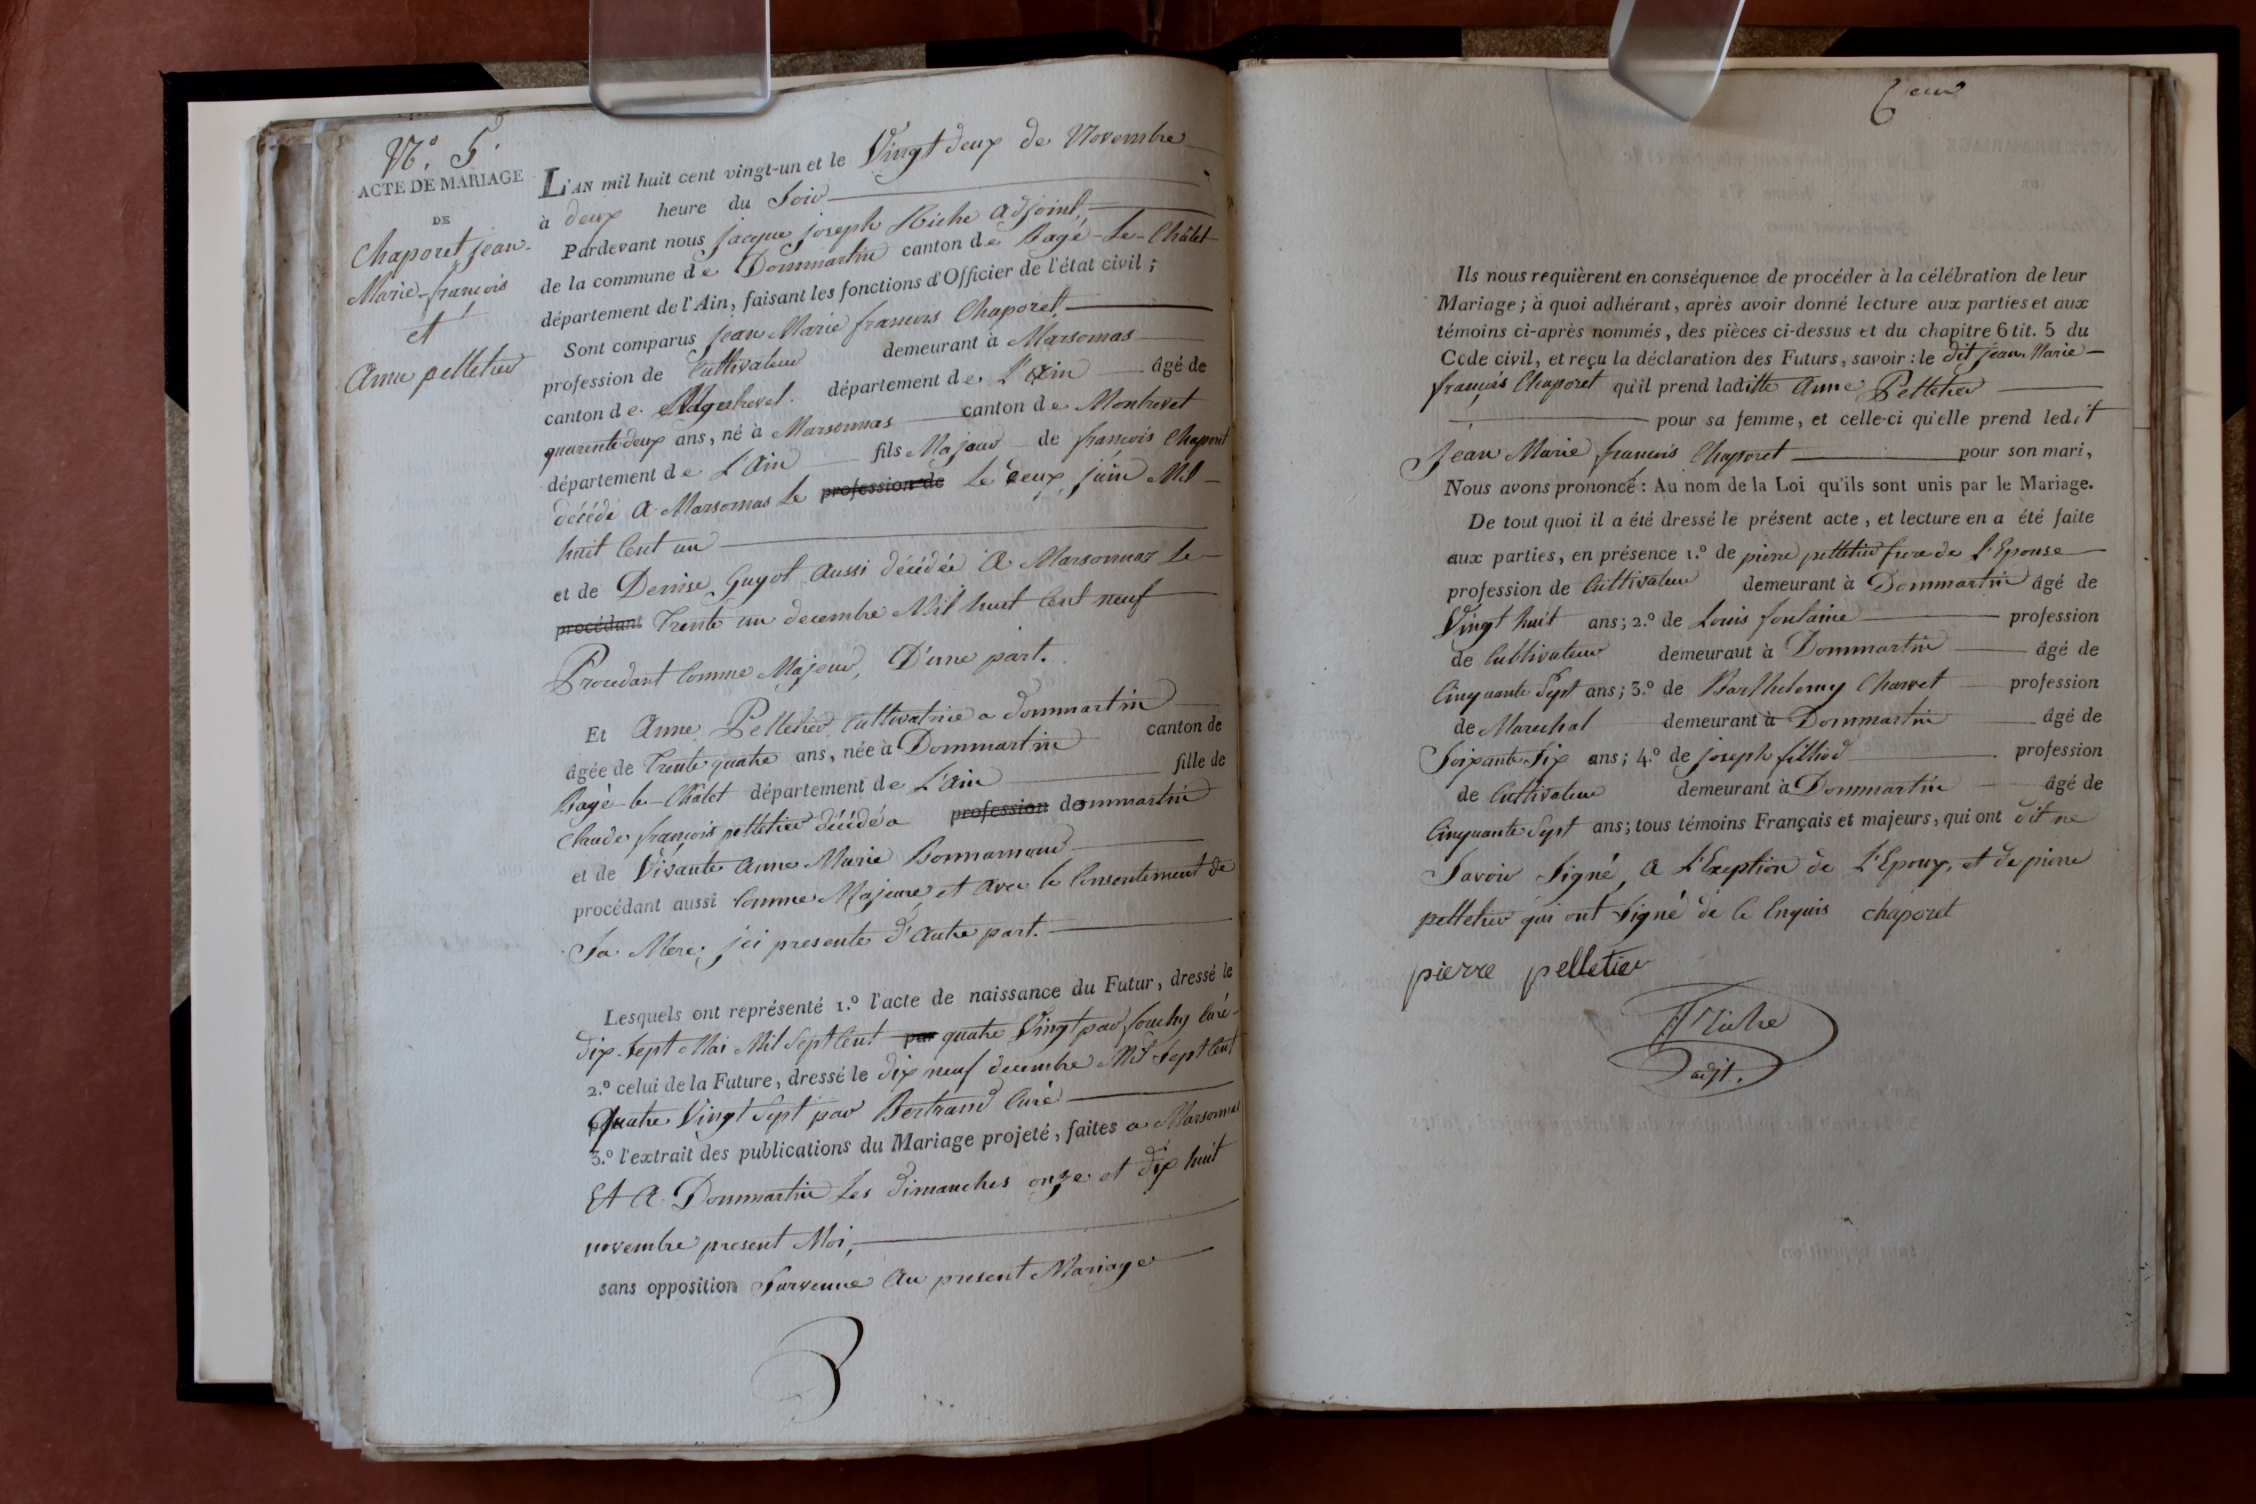 N.° 5.
ACTE DE MARIAGE
DE
Chaporet jean-
Marie-françois
et
Anne pelletier
L'AN mil huit cent vingt-un et le Vingt deux de Novembre
à deux heure du Soir
Pardevant nous jacque joseph Riche adjoint,
de la commune de Dommartin canton de Bagé-le-Châlet
département de l'Ain, faisant les fonctions d'Officier de l'état civil;
Sont comparus jean Marie francois Chaporet
profession de Cultivateur demeurant à Marsonnas
canton de Montrevel. département de L'Ain âgé de
quarente deux ans, né à Marsonnas canton de Montrevel
département de L'Ain fils Majeur de francois Chaporet
décédé a Marsonnas Le profession de Le deux juin Mil
huit Cent un
et de Denise Guyot aussi décédée a Marsonnas Le
procédant Trente un decembre Mil huit Cent neuf
Procedant Comme Majeur, D'une part.
Et Anne Pelletier Cultivatrice a dommartin
âgée de Trente quatre ans, née à Dommartin canton de
Bagé-le-Châlet département de L'Ain fille de
Claude françois pelletier décédé a profession dommartin
et de Vivante Anne Marie Bonnamour
procédant aussi Comme Majeure, et avec le Consentement de
Sa Mere, jci presente d'autre part.
Lesquels ont représenté 1.° l'acte de naissance du Futur, dressé le
dix Sept Mai Mil Sept Cent par quatre Vingt par Curé
2.° celui de la Future, dressé le dix neuf decembre Mil Sept Cent
quatre Vingt Sept par Bertrand Curé
3.° l'extrait des publications du Mariage projeté, faites a Marsonnas
Et A Dommartin Les dimanches onze et dix huit
novembre present Moi,
sans opposition Survenue Au present Mariage
Ils nous requièrent en conséquence de procéder à la célébration de leur
Mariage; à quoi adhérant, après avoir donné lecture aux parties et aux
témoins ci-après nommés, des pièces ci-dessus et du chapitre 6 tit. 5 du
Code civil, et reçu la déclaration des Futurs, savoir: le dit jean Marie
françois Chaporet qu'il prend laditte Anne Pelletier
pour sa femme, et celle-ci qu'elle prend ledit
Jean Marie francois Chaporet pour son mari,
Nous avons prononcé: Au nom de la Loi qu'ils sont unis par le Mariage.
De tout quoi il a été dressé le présent acte, et lecture en a été faite
aux parties, en présence 1.° de pierre pelletier frere de L'Epouse
profession de Cultivateur demeurant à Dommartin âgé de
Vingt huit ans; 2.° de Louis fontaine profession
de Cultivateur demeurant à Dommartin âgé de
Cinquante Sept ans; 3.° de Barthelemy Charvet profession
de Marechal demeurant à Dommartin âgé de
Soixante Six ans; 4.° de joseph fillod profession
de Cultivateur demeurant à Dommartin âgé de
Cinquante Sept ans; tous témoins Français et majeurs, qui ont dit ne
Savoir Signé, A L'Exeption de L'Epoux, et de pierre
pelletier qui ont Signé de Ce Enquis chaporet
pierre pelletier
Riche
adjt.